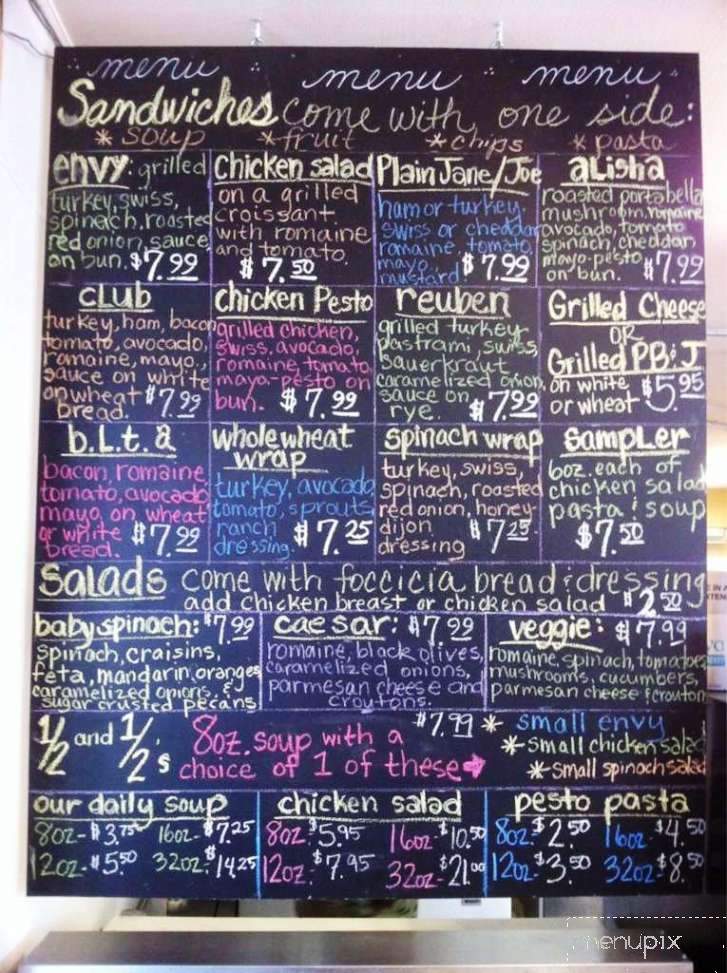 menu menu menu
Sandwiches come with one side:
* soup * fruit * chips * pasta
envy: grilled
turkey, swiss,
spinach, roasted
red onion, sauce
on bun. $7.99
Chicken salad
on a grilled
croissant
with romaine
and tomato.
$7.50
Plain Jane/Joe
ham or turkey
swiss or cheddar
romaine, tomato,
mayo,
mustard. $7.99
aLisha
roasted portabella
mushroom, romaine
avocado, tomato
spinach, cheddar
mayo-pesto
on bun. $7.99
cLub
turkey, ham, bacon
tomato, avocado,
romaine, mayo,
sauce on white
on wheat $7.99
bread.
chicken Pesto
grilled chicken,
swiss, avocado,
romaine, tomato
mayo-pesto on
bun. $7.99
reuben
grilled turkey
pastrami, swiss,
sauerkraut
caramelized onion,
sauce on
rye. $7.99
Grilled Cheese
OR
Grilled PB&J
on white
or wheat $5.95
b.L.t.a
bacon, romaine
tomato, avocado
mayo, on wheat
or white
bread. $7.99
whole wheat
wrap
turkey, avocado,
tomato, sprouts,
ranch
dressing. $7.25
spinach wrap
turkey, swiss,
spinach, roasted
red onion, honey-
dijon
dressing $7.25
sampLer
6oz. each of
chicken salad
pasta & soup
$7.50
Salads come with foccicia bread & dressing
add chicken breast or chicken salad $2.50
baby spinach: $7.99
spinach, craisins,
feta, mandarin oranges
caramelized onions, &
sugar crusted pecans
caesar: $7.99
romaine, black olives,
caramelized onions,
parmesan cheese and
croutons.
veggie: $7.99
romaine, spinach, tomatoes
mushrooms, cucumbers,
parmesan cheese & crouton
1/2 and 1/2's
8oz. soup with a $7.99
choice of 1 of these
* small envy
* small chicken salad
* small spinach salad
our daily soup
8oz- $3.75 16oz- $7.25
12oz- $5.50 32oz- $14.25
chicken salad
8oz. $5.95 16oz- $10.50
12oz- $7.95 32oz- $21.00
pesto pasta
8oz- $2.50 16oz- $4.50
12oz- $3.50 32oz- $8.50
menupix